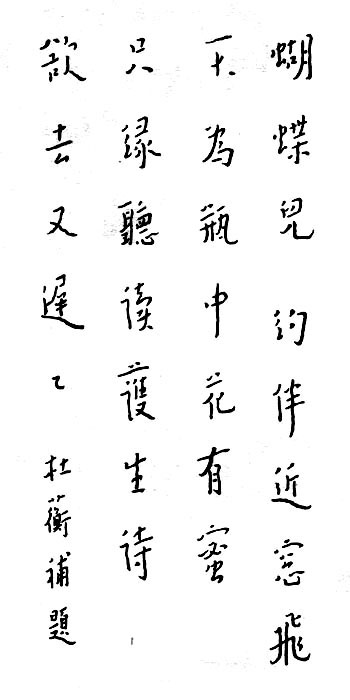 蝴蝶兒 約伴近窓飛
不為瓶中花有蜜
只緣聽讀護生詩
欲去又遲々 杜蘅補題